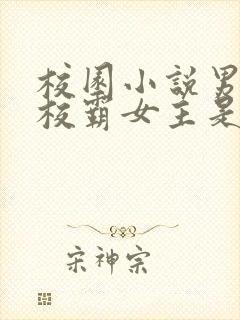 校園小說男
校霸女主是
宋神宗